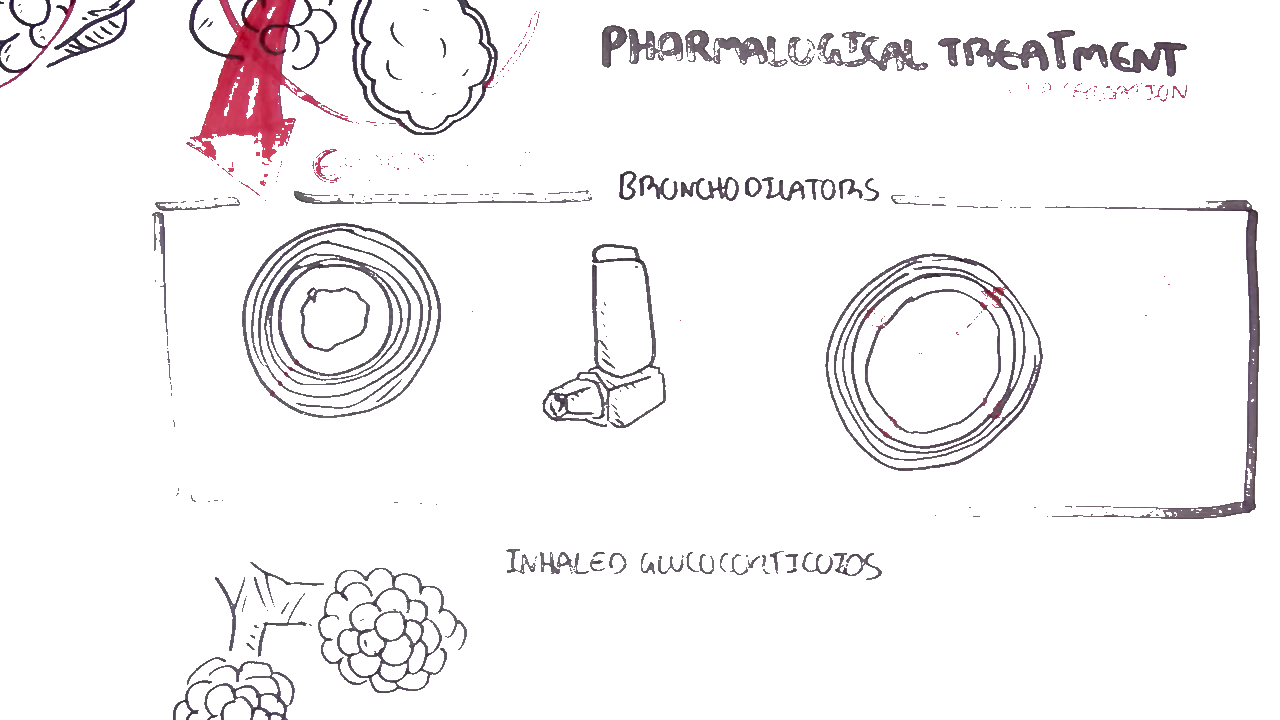 PHARMALOGICAL TREATMENT
BRONCHODILATORS
INHALED GLUCOCORTICOIDS